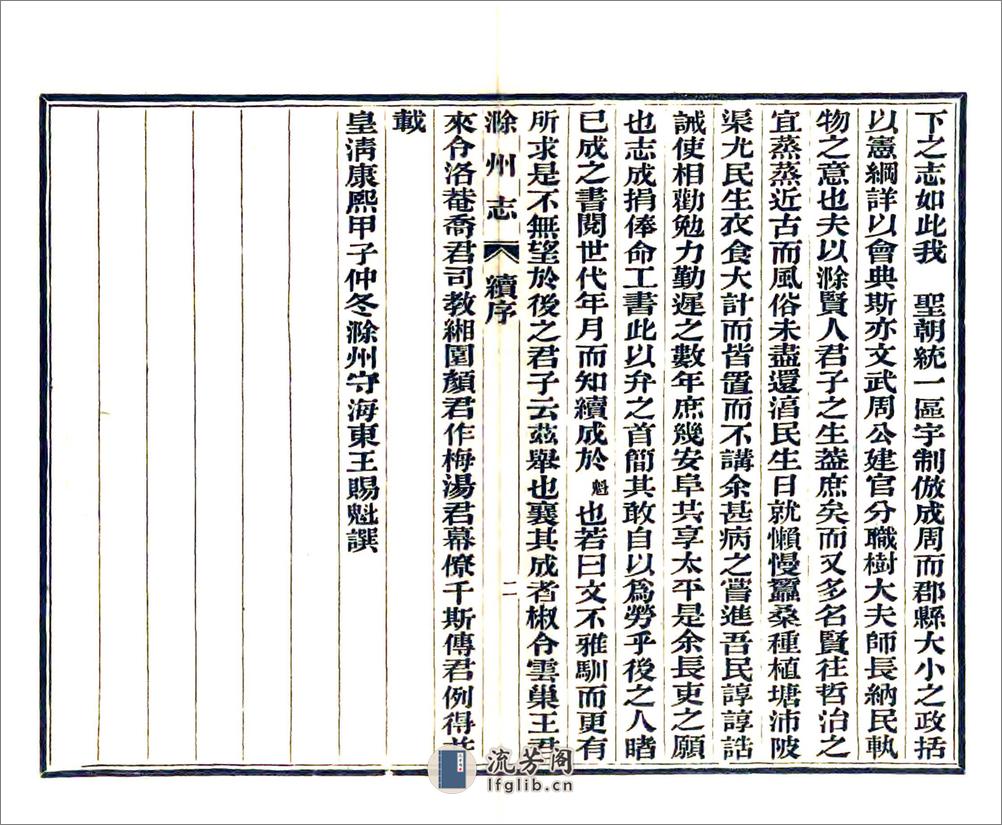 下之志如此我　聖朝統一區宇制倣成周而郡縣大小之政括
以憲綱詳以會典斯亦文武周公建官分職樹大夫師長納民執
物之意也夫以滁賢人君子之生益庶矣而又多名賢往哲治之
宜蒸蒸近古而風俗未盡還淯民生日就懶慢蠶桑種植塘沛陂
渠尤民生衣食大計而皆置而不講余甚病之嘗進吾民諄諄誥
誡使相勸勉力勤遲之數年庶幾安阜共享太平是余長吏之願
也志成捐俸命工書此以弁之首簡其敢自以爲勞乎後之人睹
已成之書閱世代年月而知續成於魁也若曰文不雅馴而更有
所求是不無望於後之君子云茲舉也襄其成者椒令雲巢王君
滁州志　續序　二
來令洛菴喬君司教緗圍顏君作梅湯君幕僚千斯傳君例得並
載
皇淸康熙甲子仲冬滁州守海東王賜魁譔
流芳閣
lfglib.cn